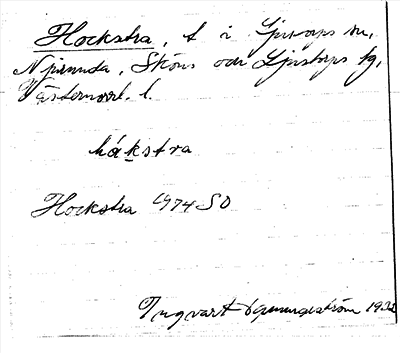 Hockstra, t i Ljustorps sn,
Njurunda, Sköns och Ljustorps tg,
Västernorrl. l.
håkstra
Hockstra 1974 SO
Ingvart 1932